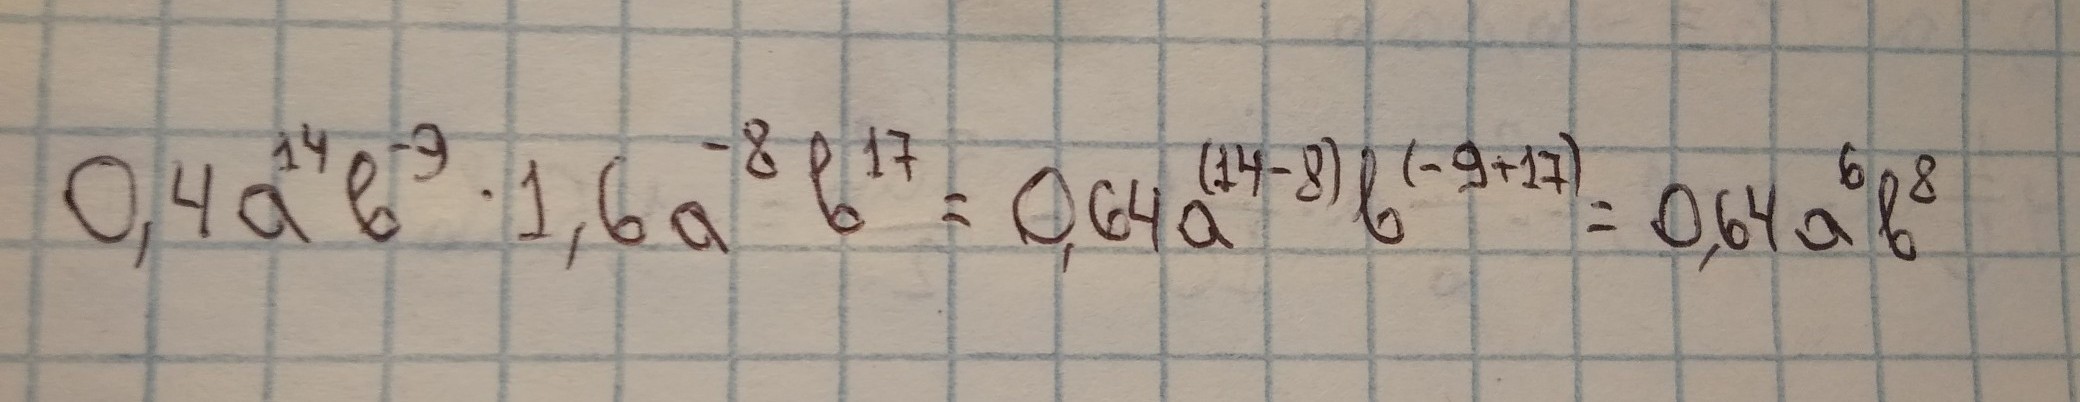 0,4a¹⁴b⁻⁹ · 1,6a⁻⁸b¹⁷ = 0,64a⁽¹⁴⁻⁸⁾b⁽⁻⁹⁺¹⁷⁾ = 0,64a⁶b⁸